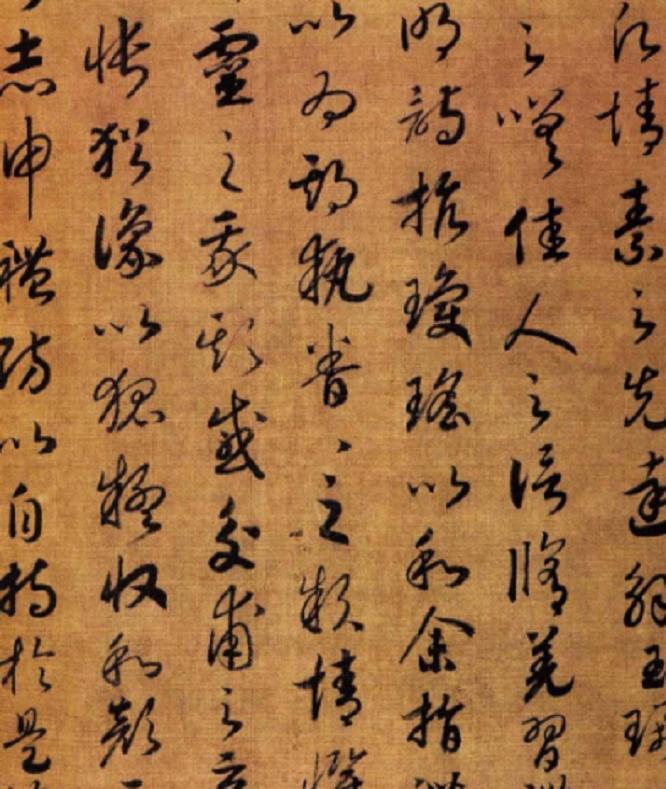 情素之先達解玉珮
之嗟佳人之信脩羌習
明詩抗瓊瑤以和余指
以為期執眷〻之款情
靈之我欺感交甫之
悵猶豫以狐疑收和顏
志申禮防以自持於是